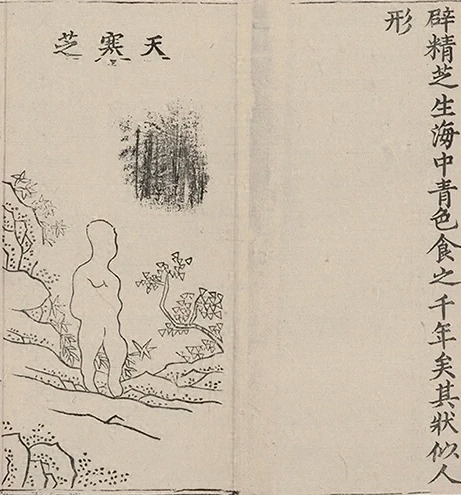 辟精芝生海中青色食之千年矣其狀似人
形
天寒芝